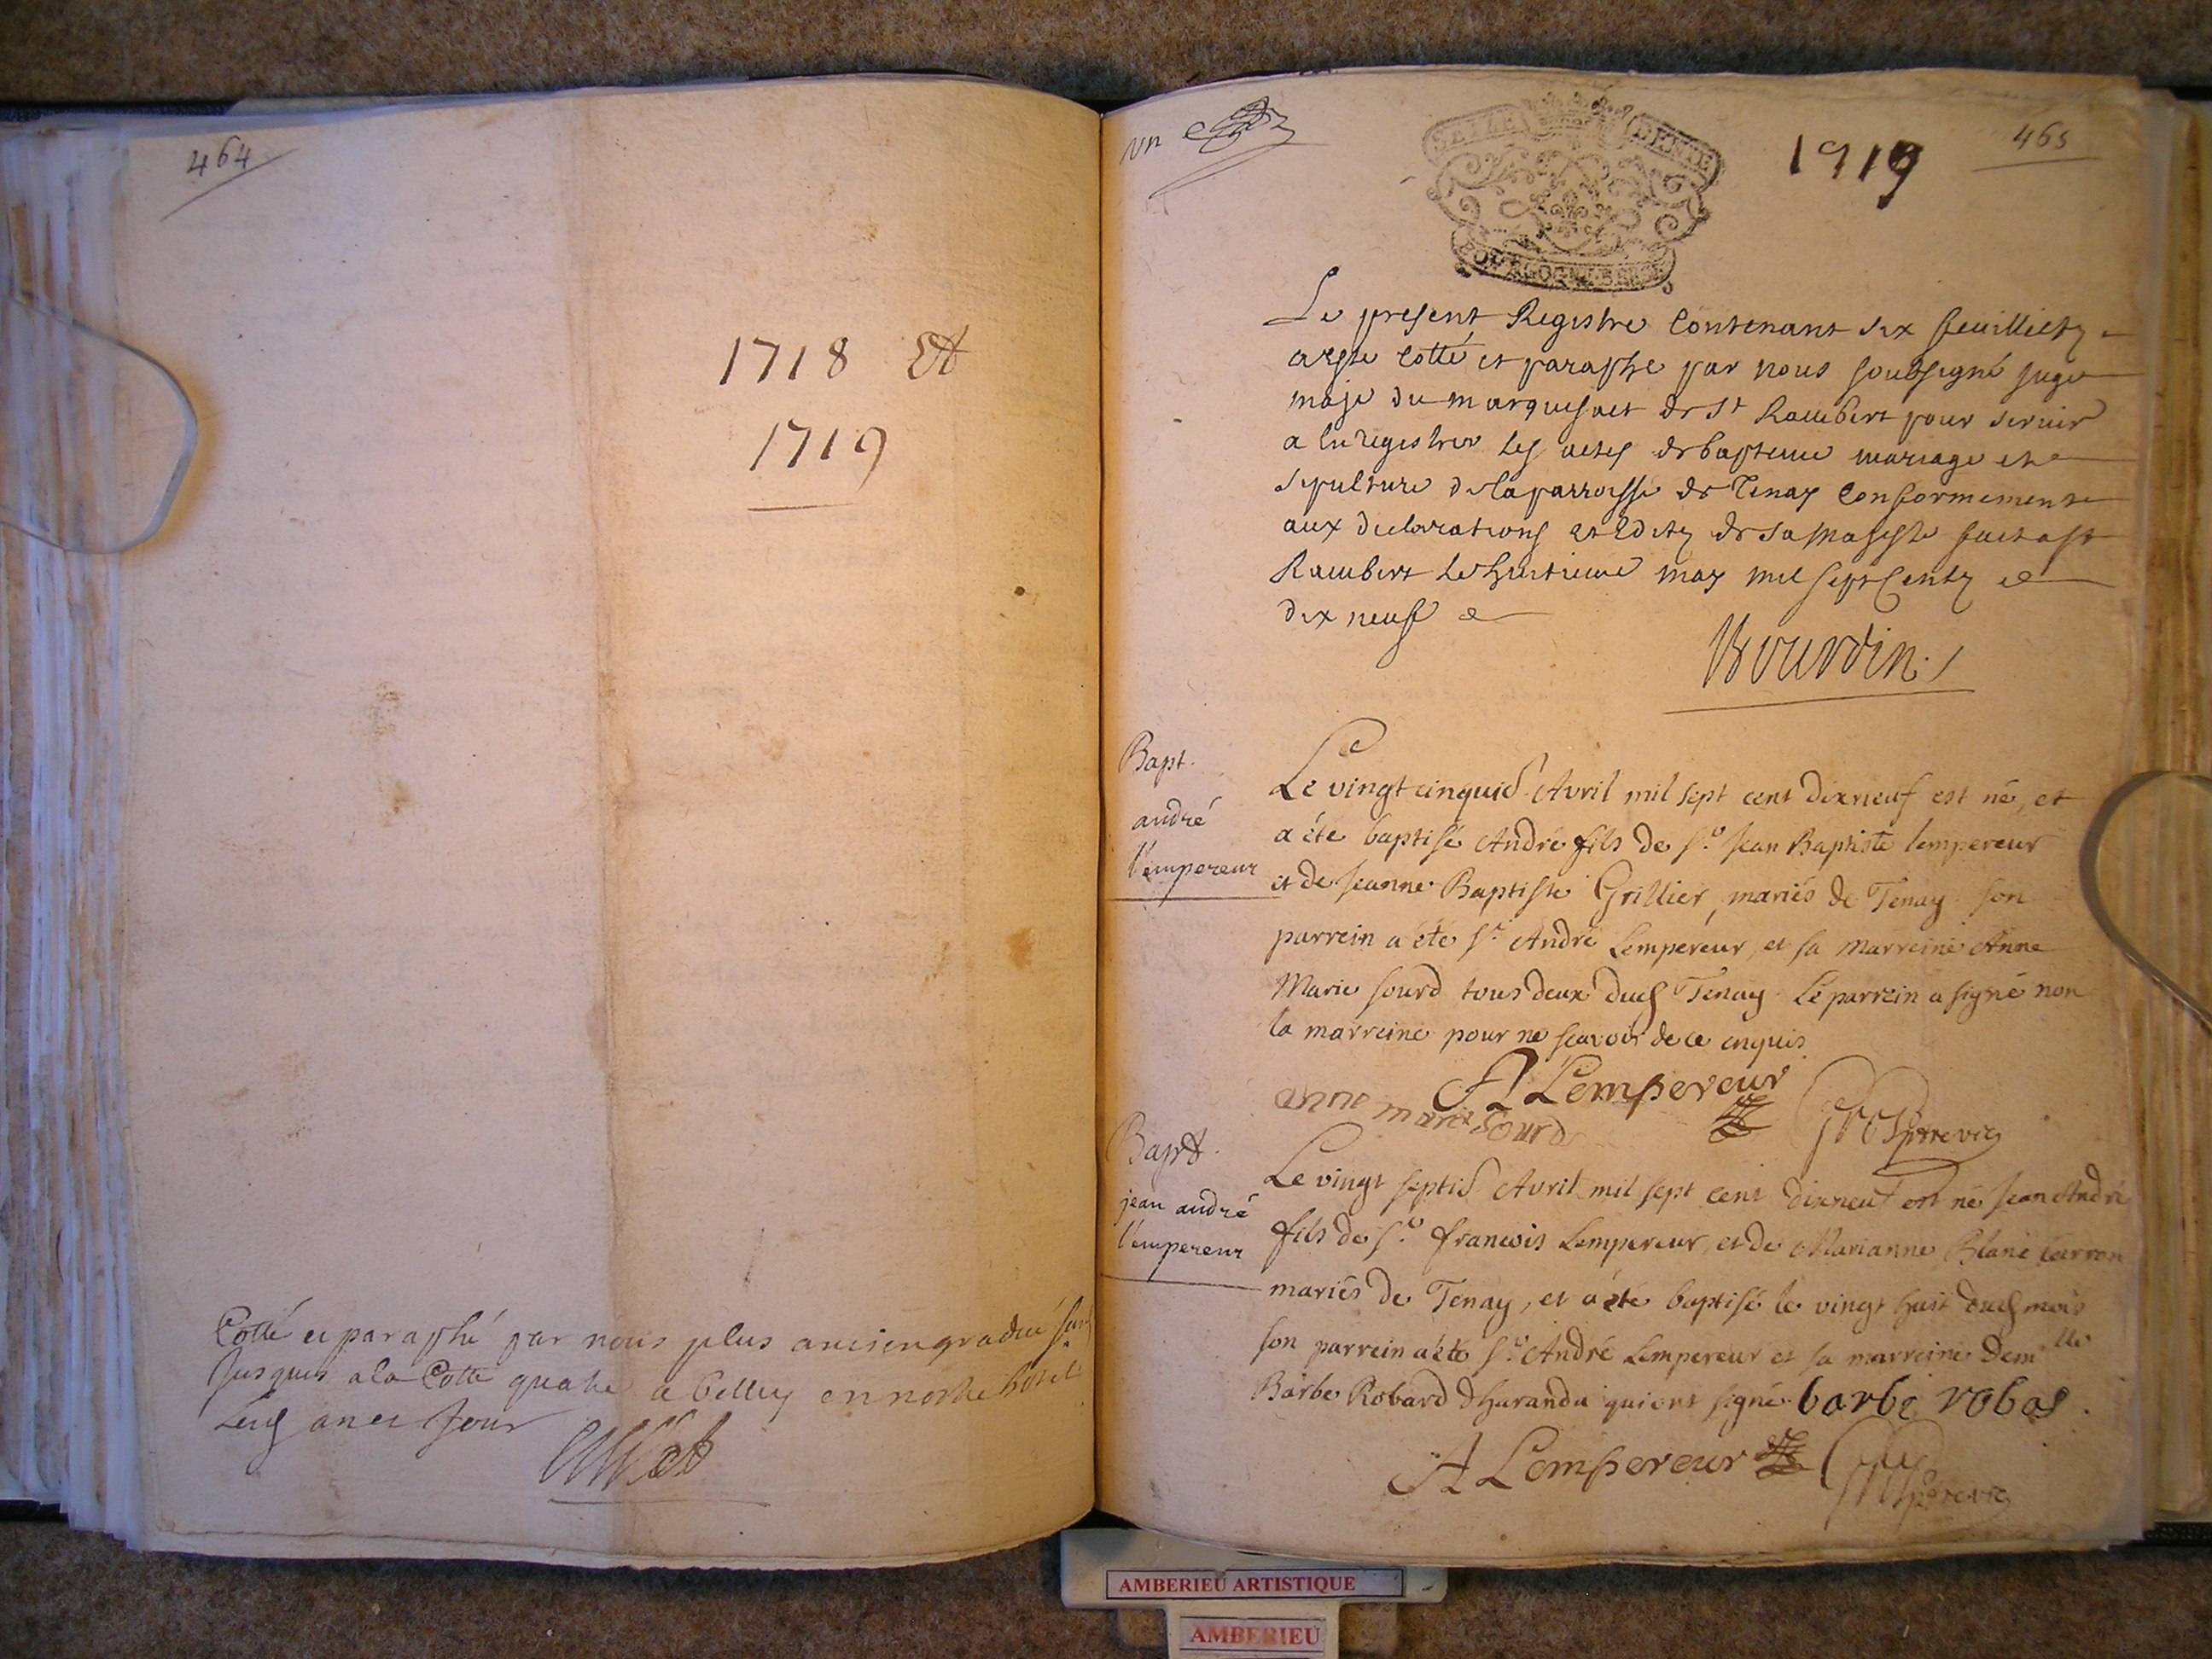 464
1718 Et
1719
Cotté et paraphé par nous plus ancien gradué
Jusques a la Cotte quatre a belley en nostre hotel
an et Jour
un
465
1719
Le present Registre Contenant six feuillietz
a este cotté et paraphe par nous soubsigné juge
maje du marquisact de St Rambert pour servir
a enregistrer les actes de bapteme mariage et
sepulture de la parroisse de Tenay Conformement
aux declarations et Editz de sa Majesté fait a St
Rambert le huitieme may mil sept Centz et
dix neuf
Bourdin
Bapt.
andré
l'empereur
Le vingt cinquie. Avril mil sept cent dixneuf est né, et
a été baptisé André fils de sr. Jean Baptiste lempereur
et de Jeanne Baptiste Grillier, mariés de Tenay son
parrein a été sr. André Lempereur, et sa marreine Anne
Marie Sourd tous deux dud Tenay. Le parrein a signé non
la marreine pour ne scavoir de ce enquis
A Lempereur
anne marie Sourd
Bapt.
jean andré
l'empereur
Le vingt septie. Avril mil sept cent dixneuf est né Jean André
fils de sr. francois Lempereur, et de Marianne Blanc Carron
mariés de Tenay, et a été baptisé le vingt huit dud mois
son parrein a été sr. André Lempereur et sa marreine demlle
Barbe Robard qui ont signé. barbe robas
A Lempereur
AMBERIEU ARTISTIQUE
AMBERIEU